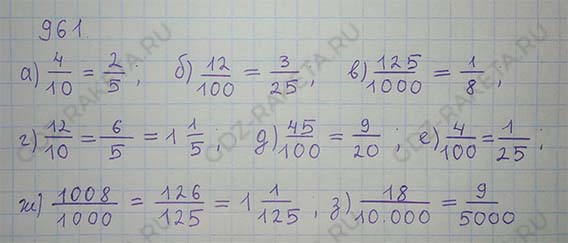 961.
а) 4/10 = 2/5; б) 12/100 = 3/25; в) 125/1000 = 1/8;
г) 12/10 = 6/5 = 1 1/5; д) 45/100 = 9/20; е) 4/100 = 1/25;
ж) 1008/1000 = 126/125 = 1 1/125; з) 18/10.000 = 9/5000
GDZ-RAKETA.RU